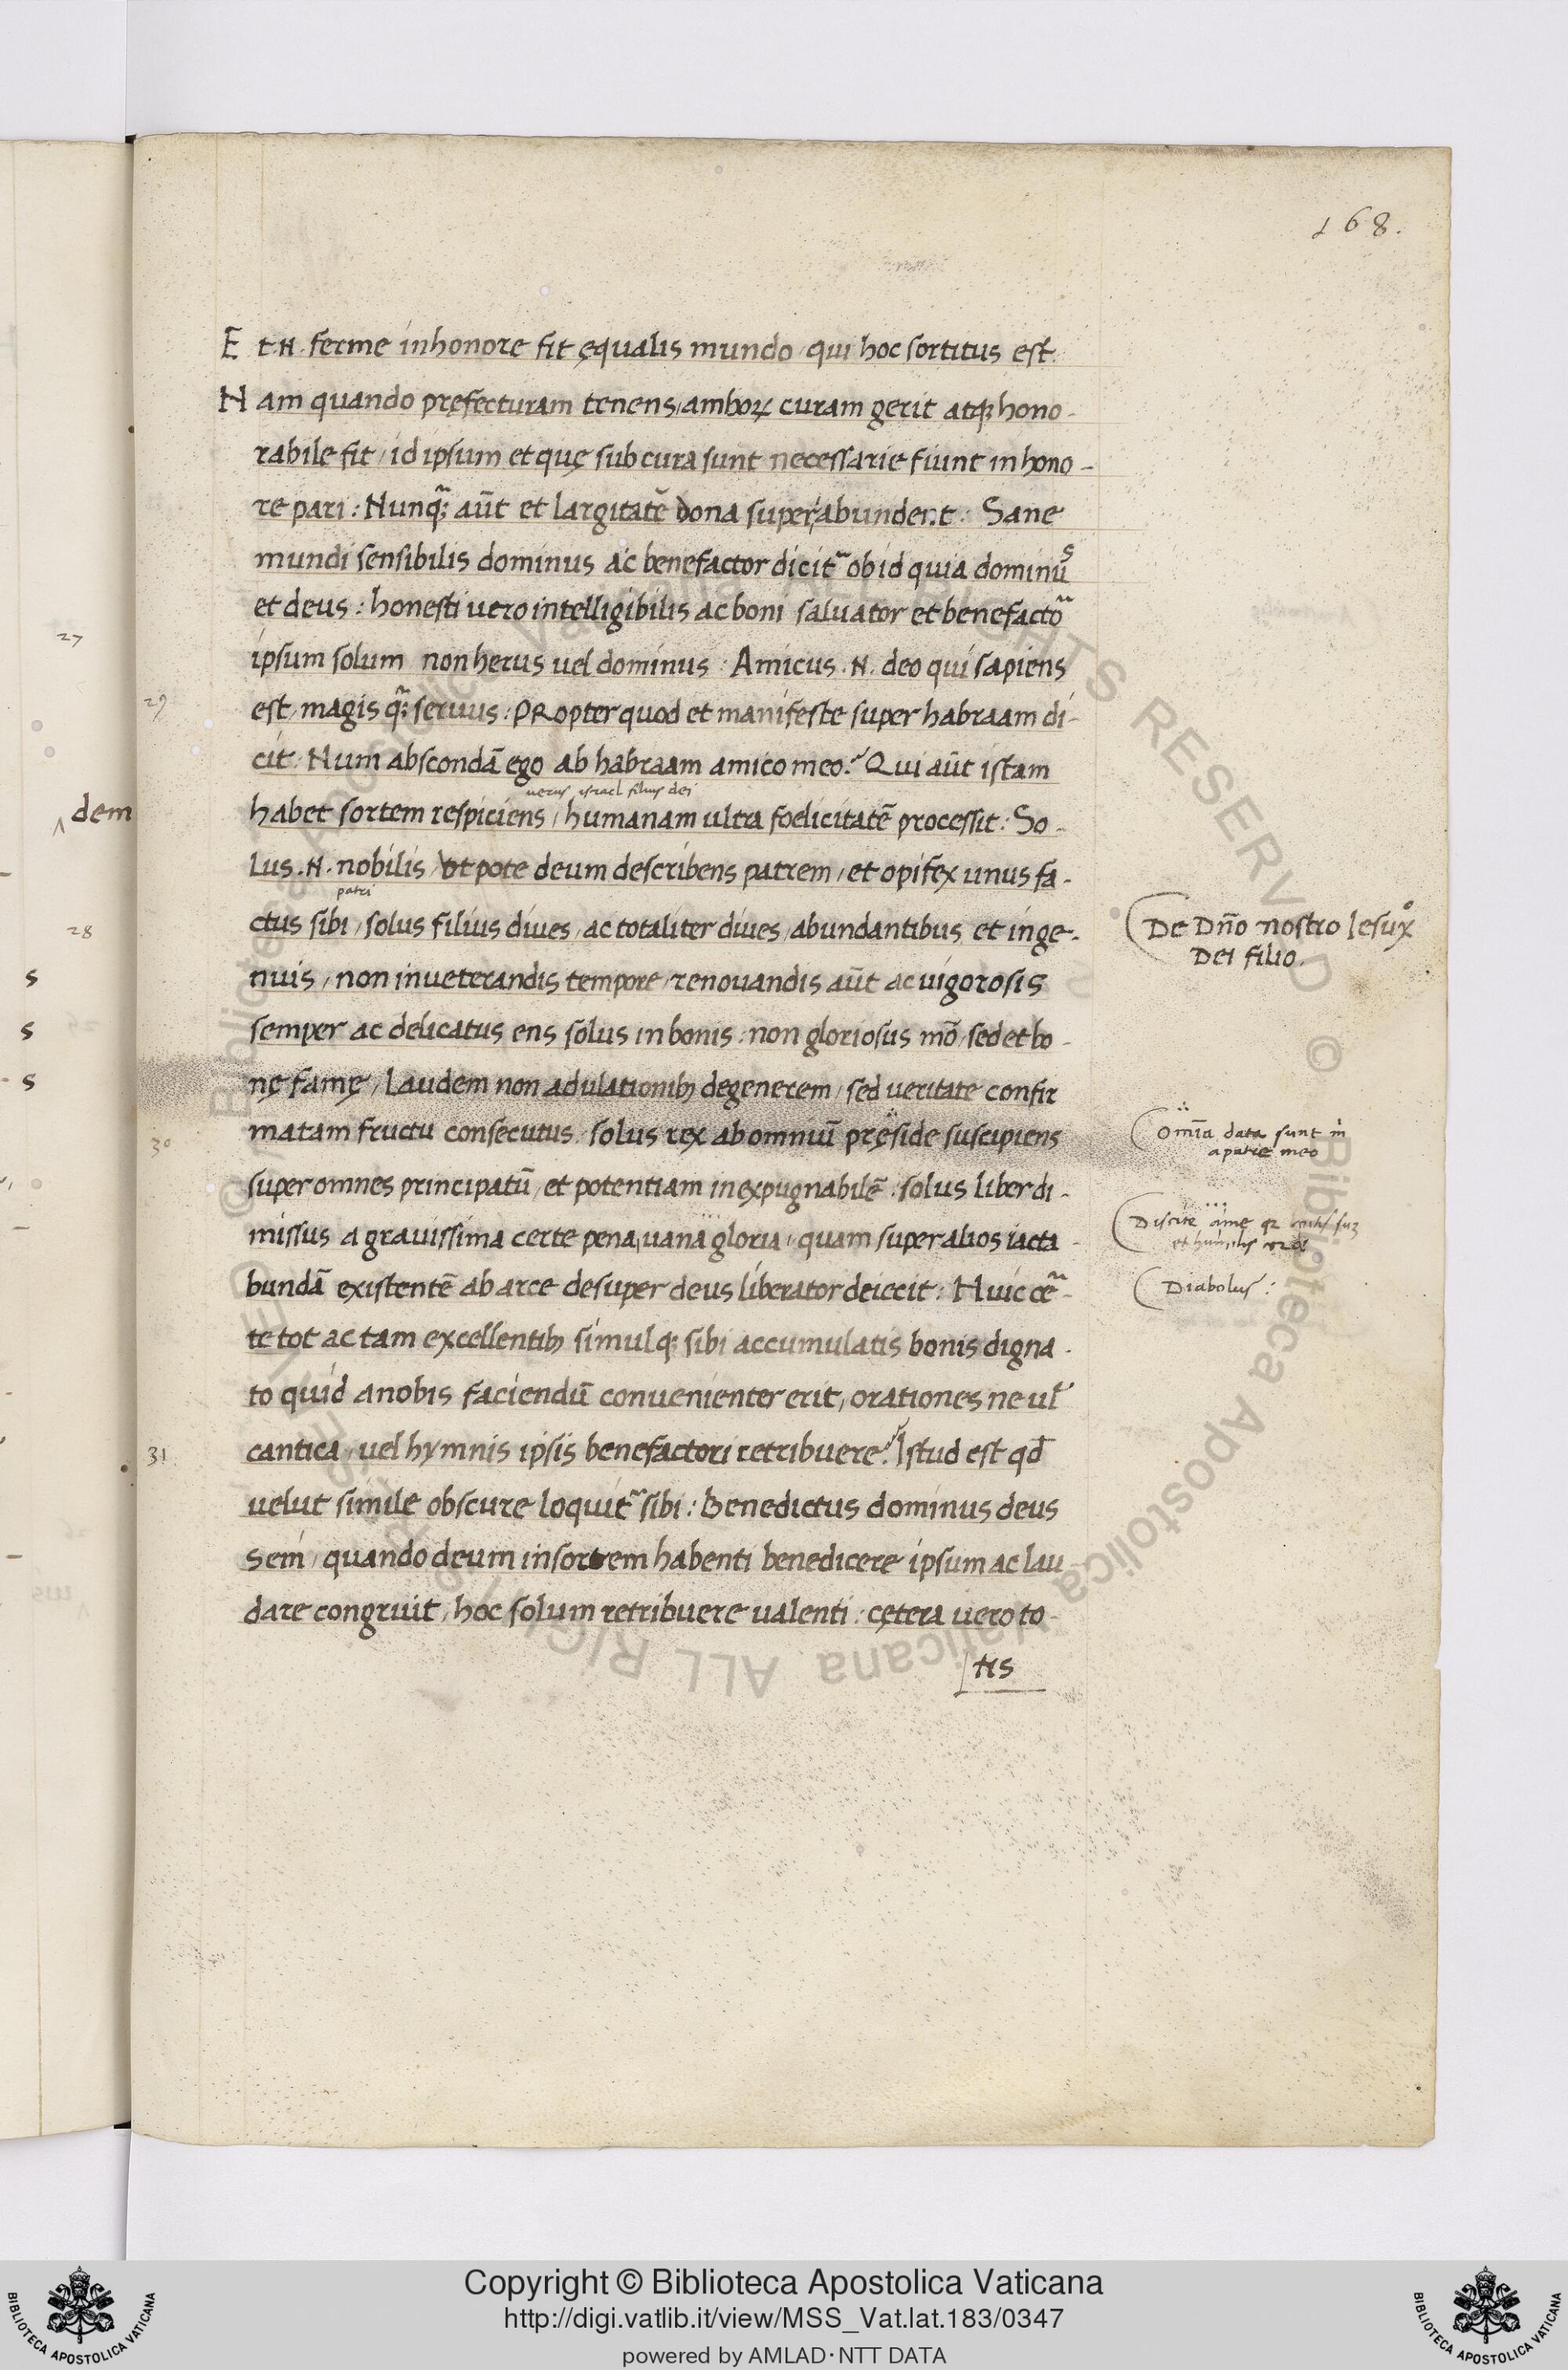 168.
Et .N. ferme in honore fit ęqualis mundo qui hoc sortitus est.
Nam quando pręfecturam tenens, amboꝝ curam gerit atqꝫ hono-
rabile fit, id ipsum et quę sub cura sunt necessarie fiunt in hono-
re pari: Nunqꝫ aūt et largitatē dona superabundent: Sane
mundi sensibilis dominus ac benefactor dicit~ ob id quia dominūs
et deus: honesti uero intelligibilis ac boni saluator et benefacto~
ipsum solum non herus uel dominus: Amicus .N. deo qui sapiens
est, magis qꝫ seruus: PRopter quod et manifeste super habraam di-
cit: Num abscondā ego ab habraam amico meo? Qui aūt istam
uerus israel filius dei
habet sortem respiciens, humanam ultra foelicitatē processit: So-
lus .N. nobilis ut pote deum describens patrem, et opifex unus fa-
patri
ctus sibi, solus filius diues, ac totaliter diues, abundantibus et inge-
nuis, non inueterandis tempore, renouandis aūt ac vigorosis
semper ac delicatus ens solus in bonis: non gloriosus mō, sed et bo-
nę famę, laudem non adulationibꝫ degenerem, sed ueritate confir
matam fructu consecutus. solus rex ab omniū pręside suscipiens
super omnes principatū, et potentiam inexpugnabilē: solus liber di-
missus a grauissima certe pena, uana gloria, quam super alios iacta-
bundā existentē ab arce desuper deus liberator deiecit: Huic ce~-
te tot ac tam excellentibꝫ simulqꝫ sibi accumulatis bonis digna-
to quid a nobis faciendū conuenienter erit, orationes ne ul'
cantica, uel hymnis ipsis benefactori retribuere? Istud est qđ
uelut simile obscure loquit~ sibi: Benedictus dominus deus
Sem, quando deum in sortem habenti benedicere ipsum ac lau
dare congruit, hoc solum retribuere ualenti: cętera uero to-
tis
De Dño nostro Iesu xº
Dei filio.
Omīa data sunt m̊
a patre meo
Discite a me qꝛ
et humilis
Diabolus:
29
30
31
27
dem
28
s
s
s
Copyright © Biblioteca Apostolica Vaticana
http://digi.vatlib.it/view/MSS_Vat.lat.183/0347
powered by AMLAD·NTT DATA
BIBLIOTECA APOSTOLICA VATICANA
BIBLIOTECA APOSTOLICA VATICANA